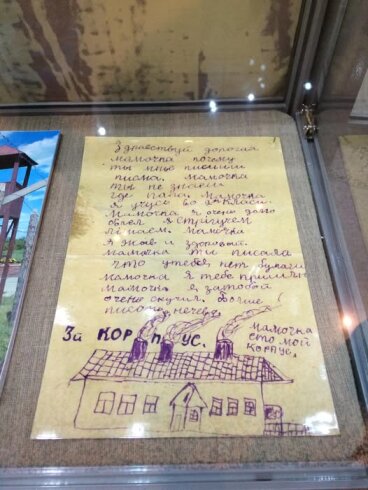 Здравствуй дорогая
мамочка почему
ты мне пишиш
писма. мамочка
ты не знаеш
где папа. Мамочка
я учусь во 2м класи.
Мамочка я очень долго
Мамочка
я жив и здоровый.
мамочка ты писала
что у тебя нет бумаги
мамочка я тебе
мамочка я за тобой
очень скучил. больше
писать нечево.
3й КОРПУС.
мамочка
ето мой
корпус.